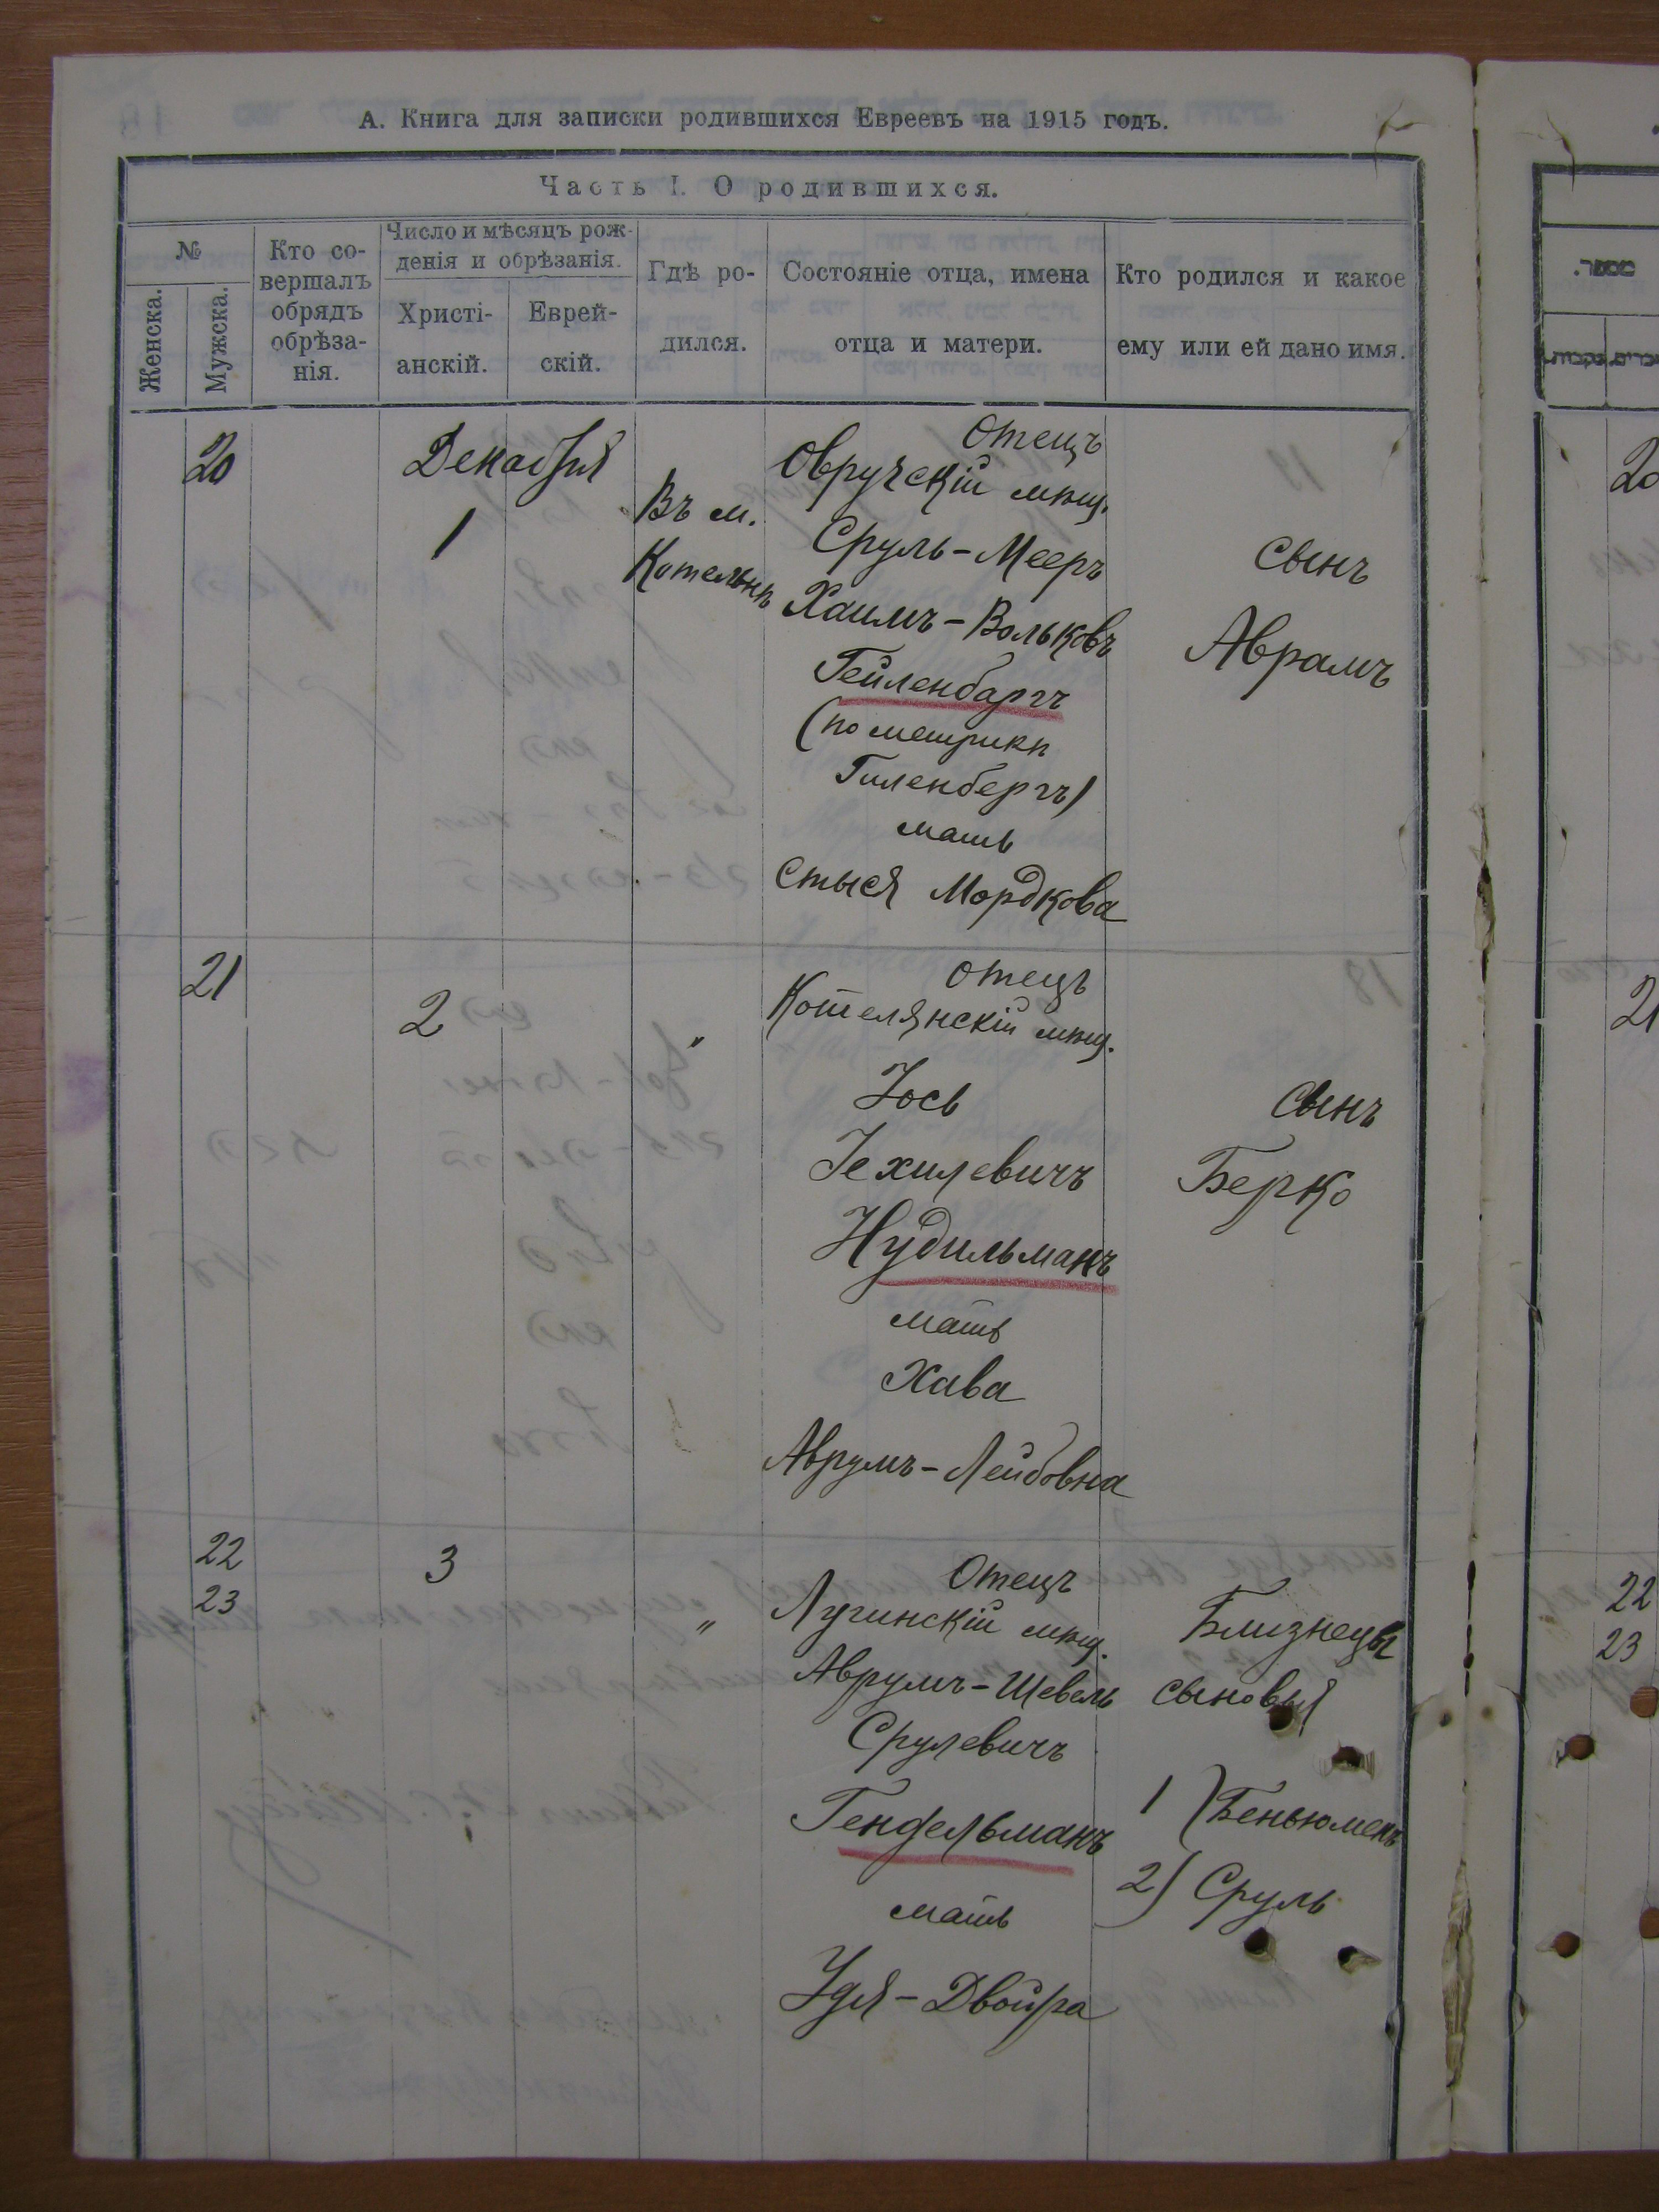 А. Книга для записки родившихся Евреевъ на 1915 годъ.
Часть I. О родившихся.
№
Женска.
Мужска.
Кто со-
вершалъ
обрядъ
обрѣза-
нія.
Число и мѣсяцъ рож-
денія и обрѣзанія.
Христі-
анскій.
Еврей-
скій.
Гдѣ ро-
дился.
Состояніе отца, имена
отца и матери.
Кто родился и какое
ему или ей дано имя.
20
Декабря
1
Въ м.
Котельнѣ
Отецъ
Овручскій мѣщ.
Сруль-Мееръ
Хаимъ-Вольковъ
Гейленбаргъ
(по метрикѣ
Гиленбергъ)
мать
Стыся Мордкова
сынъ
Аврамъ
21
2
„
Отецъ
Котелянскій мѣщ.
Іось
Іехилевичъ
Нудильманъ
мать
Хава
Аврумъ-Лейбовна
сынъ
Берко
22
23
3
„
Отецъ
Лугинскій мѣщ.
Аврумъ-Шевель
Срулевичъ
Гендельманъ
мать
Удя-Двойра
Близнецы
сыновья
1) Беньюменъ
2) Сруль
20
21
22
23